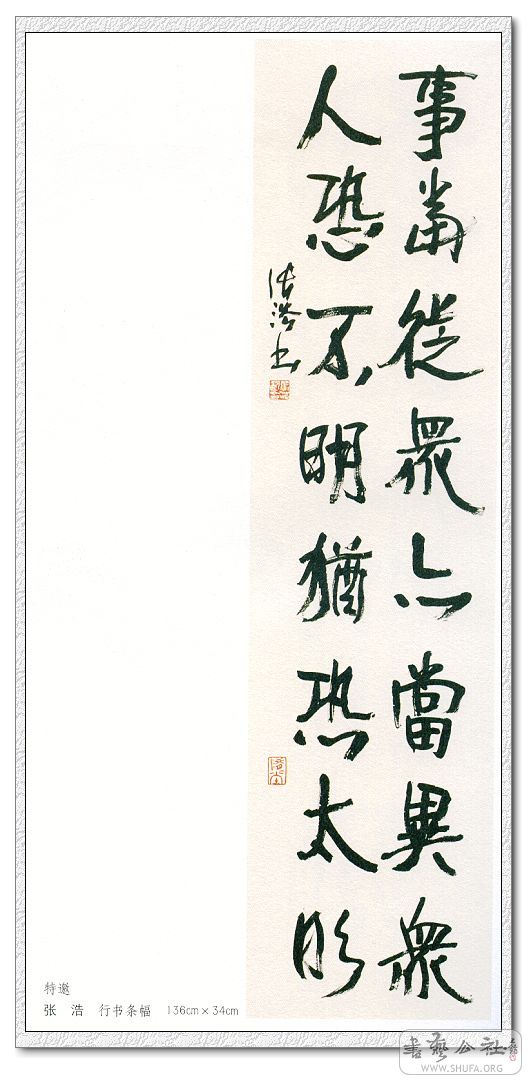 事當從衆亦當異衆
人恐不明猶恐太明
張浩书
特邀
张 浩 行书条幅 136cm×34cm
書藝公社
WWW.SHUFA.ORG